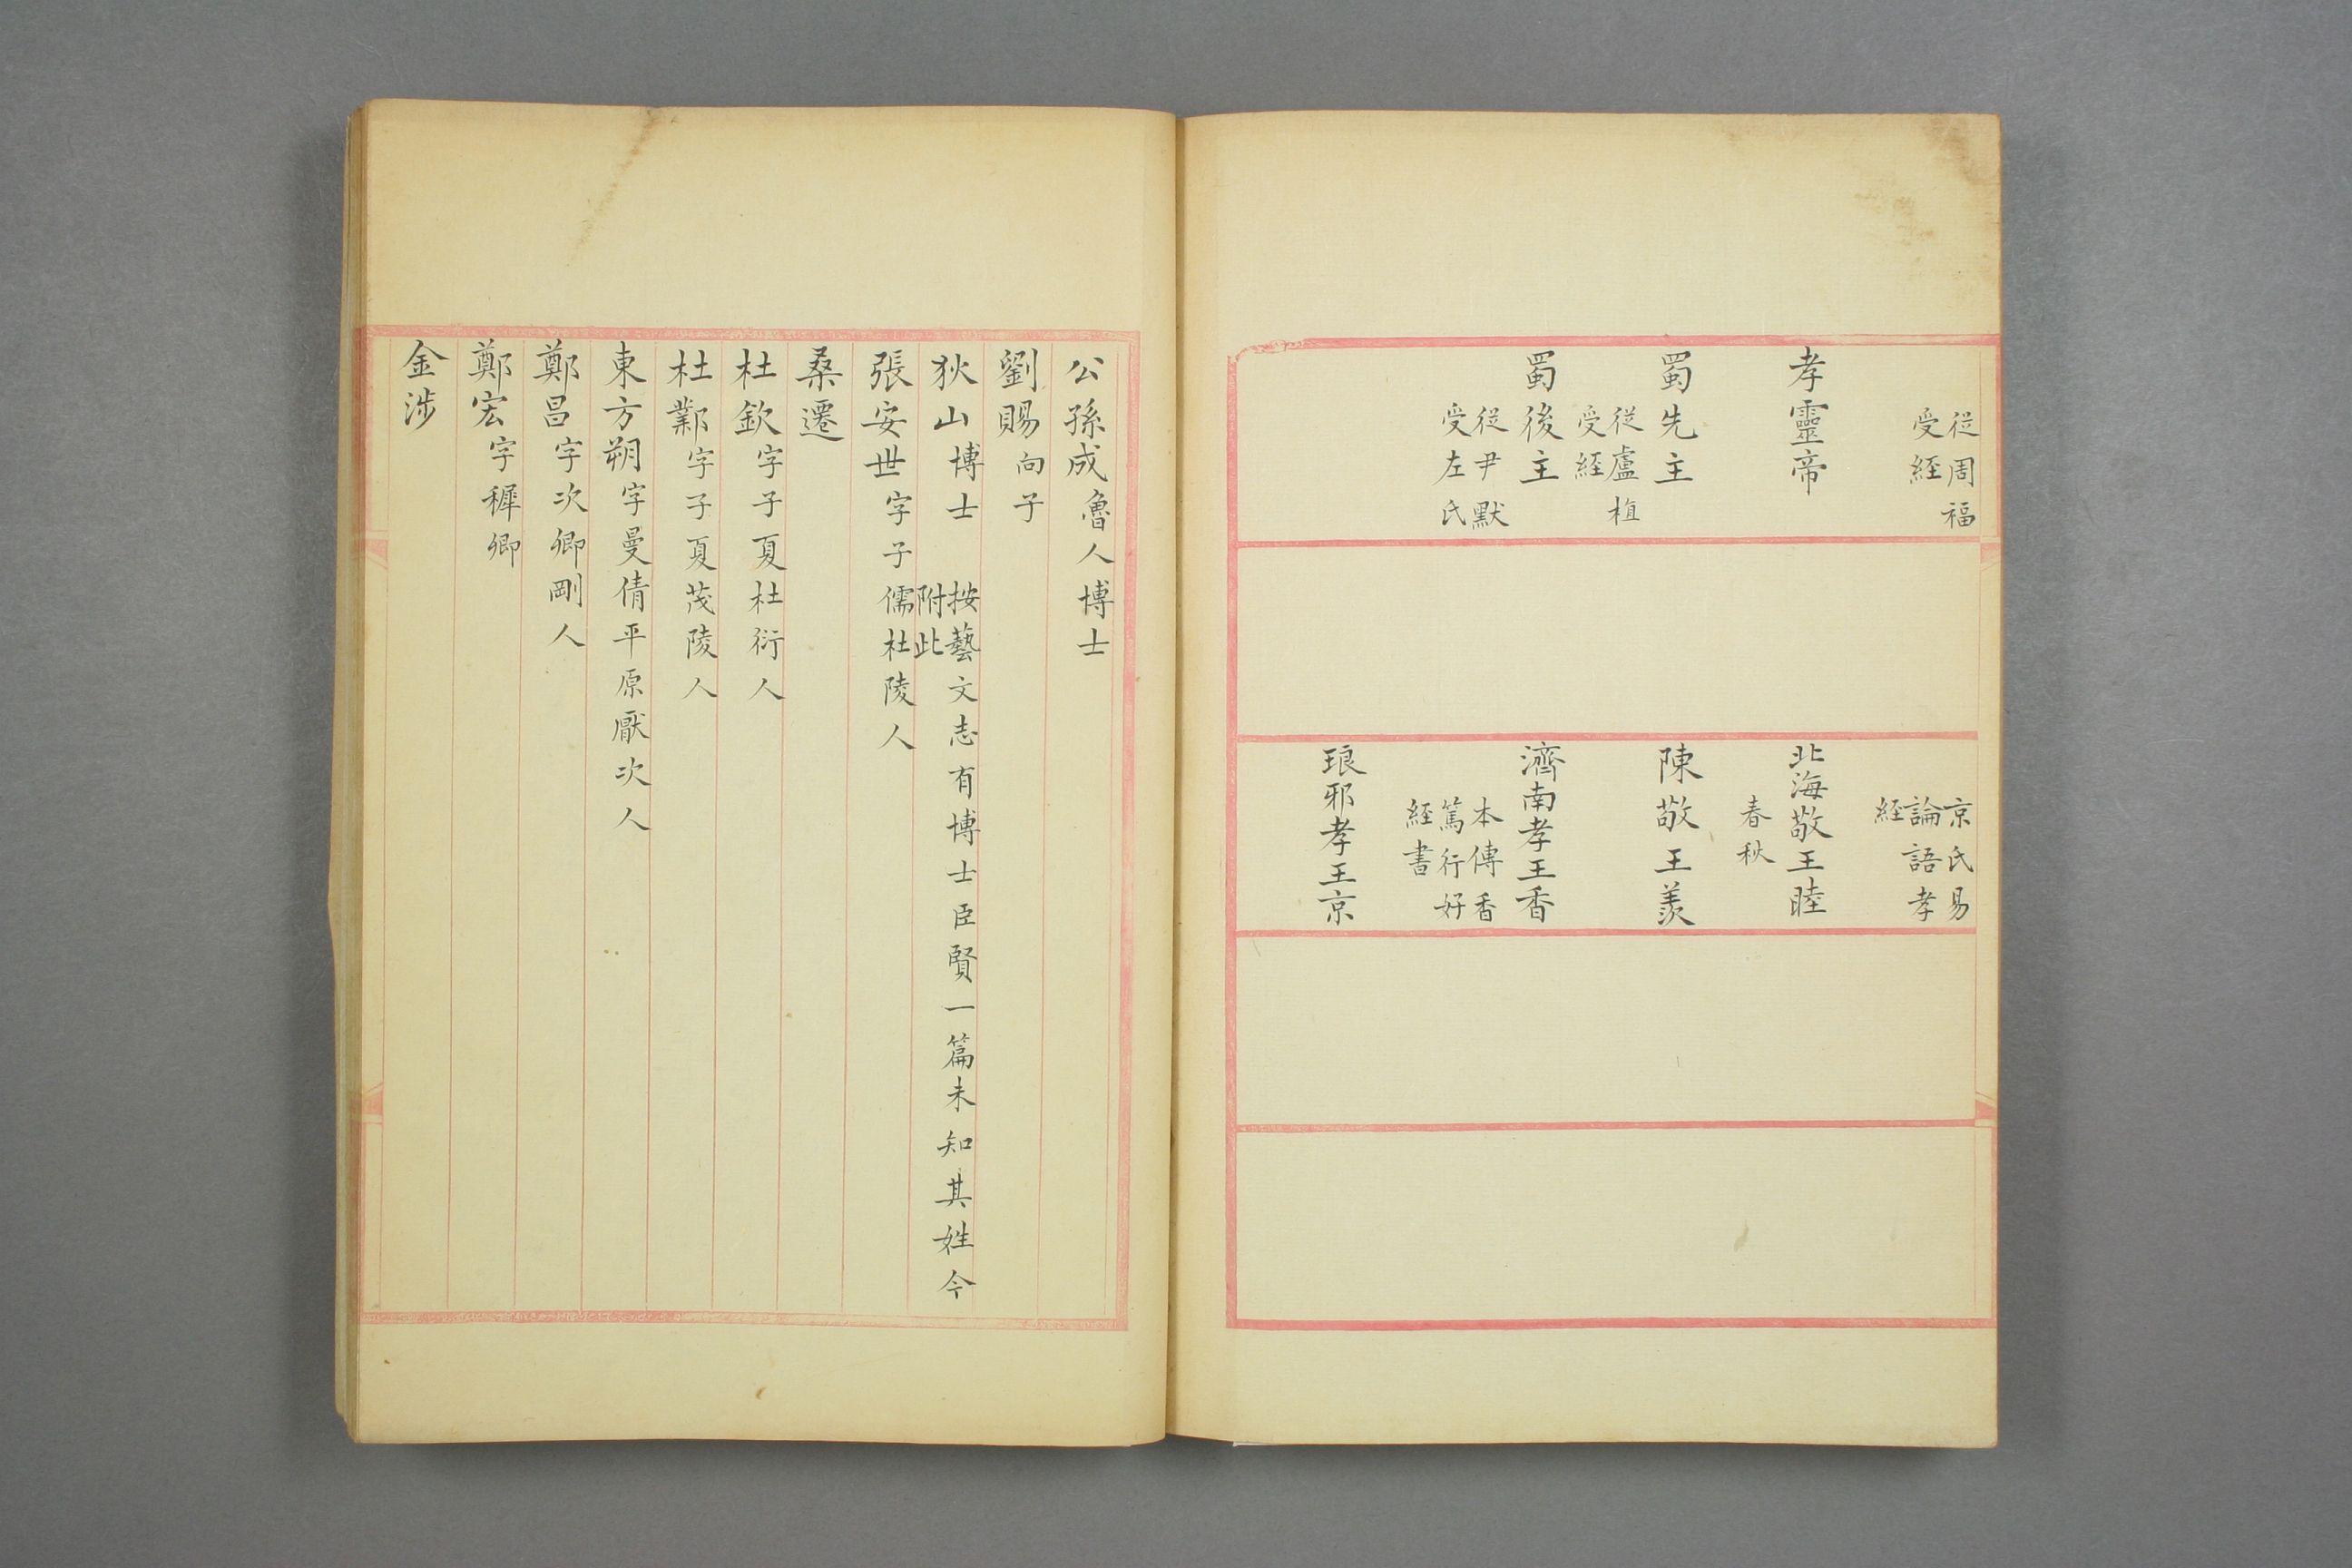 從周福
受經
孝靈帝
蜀先主
從盧植
受經
蜀後主
從尹默
受左氏
京氏易
論語孝
經
北海敬王睦
春秋
陳敬王羨
濟南孝王香
本傳香
篤行好
經書
琅邪孝王京
公孫成魯人博士
劉賜向子
狄山博士 按藝文志有博士臣賢一篇未知其姓今
附此
張安世字子儒杜陵人
桑遷
杜欽字子夏杜衍人
杜鄴字子夏茂陵人
東方朔字曼倩平原厭次人
鄭昌字次卿剛人
鄭宏字穉卿
金涉